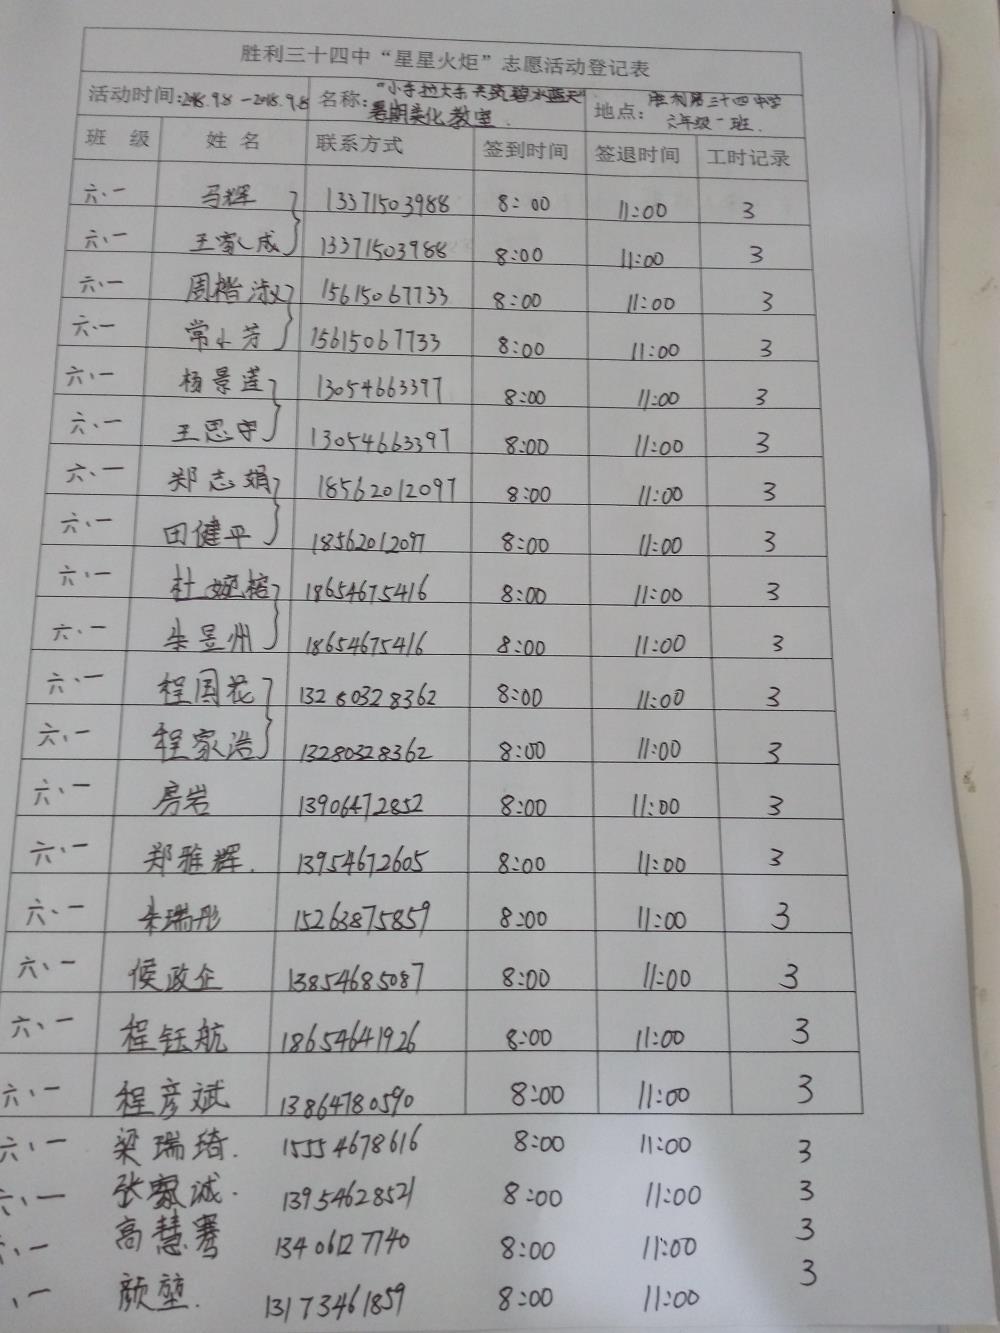 胜利三十四中“星星火炬”志愿活动登记表
活动时间：2018.9.8－2018.9.8 名称：“小手拉大手 共筑碧水蓝天” 暑期美化教室. 地点：胜利第三十四中学 六年级一班.
班 级 姓 名 联系方式 签到时间 签退时间 工时记录
六、一 马辉 13371503988 8：00 11:00 3
六、一 王家成 13371503988 8:00 11:00 3
六、一 周楷淑 15615067733 8:00 11:00 3
六、一 常小芳 15615067733 8:00 11:00 3
六、一 杨景莲 13054663397 8:00 11:00 3
六、一 王思守 13054663397 8:00 11:00 3
六、一 郑志娟 18562012097 8:00 11:00 3
六、一 田健平 18562012097 8:00 11:00 3
六、一 杜婉榕 18654675416 8:00 11:00 3
六、一 朱昱州 18654675416 8:00 11:00 3
六、一 程国花 13280328362 8:00 11:00 3
六、一 程家浩 13280328362 8:00 11:00 3
六、一 房岩 13906472852 8:00 11:00 3
六、一 郑雅辉. 13954672605 8:00 11:00 3
六、一 朱瑞彤 15263875859 8:00 11:00 3
六、一 侯政企 13854685087 8:00 11:00 3
六、一 程钰航 18654641926 8:00 11:00 3
六、一 程彦斌 13864780590 8:00 11:00 3
六、一 梁瑞琦. 15554678616 8:00 11:00 3
六、一 张家诚. 13954628521 8:00 11:00 3
六、一 高慧骞 13406127740 8:00 11:00 3
、一 颜堃. 13173461859 8:00 11:00 3